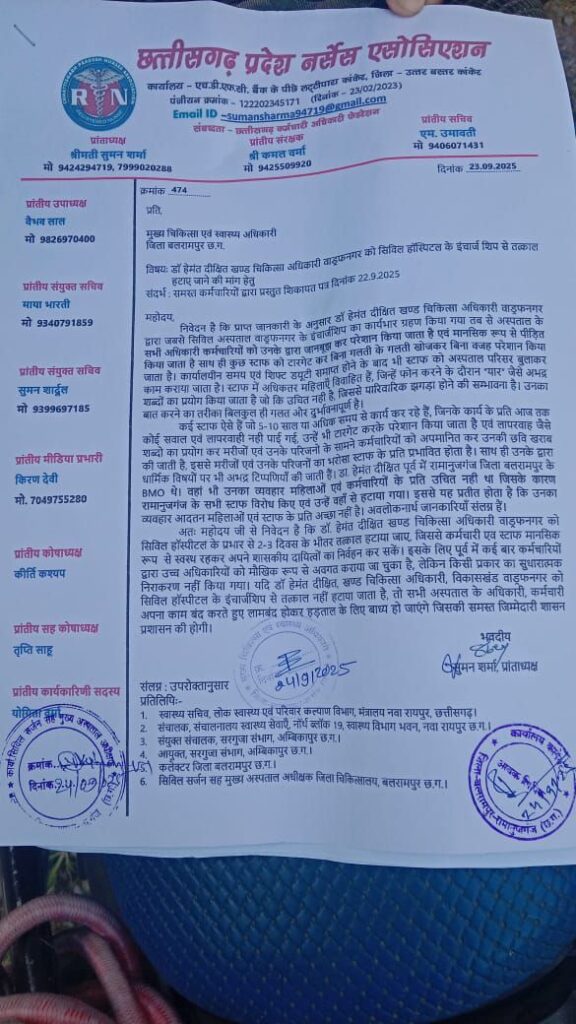 छत्तीसगढ़ प्रदेश नर्सेस एसोसिएशन
कार्यालय – एच.डी.एफ.सी. बैंक के पीछे लट्टीपारा कांकेर, जिला – उत्तर बस्तर कांकेर
पंजीयन क्रमांक - 122202345171 (दिनांक - 23/02/2023)
Email ID –sumansharma94719@gmail.com
संबध्दता – छत्तीसगढ़ कर्मचारी अधिकारी फेडरेशन
R N
प्रांताध्यक्ष
श्रीमती सुमन शर्मा
मो 9424294719, 7999020288
प्रांतीय संरक्षक
श्री कमल वर्मा
मो 9425509920
प्रांतीय सचिव
एम. उमावती
मो 9406071431
दिनांक 23.09.2025
क्रमांक 474
प्रांतीय उपाध्यक्ष
वैभव लाल
मो 9826970400
प्रांतीय संयुक्त सचिव
माया भारती
मो 9340791859
प्रांतीय संयुक्त सचिव
सुमन शार्दुल
मो 9399697185
प्रांतीय मीडिया प्रभारी
किरण देवी
मो. 7049755280
प्रांतीय कोषाध्यक्ष
कीर्ति कश्यप
प्रांतीय सह कोषाध्यक्ष
तृप्ति साहू
प्रांतीय कार्यकारिणी सदस्य
योगिता वर्मा
प्रति,
मुख्य चिकित्सा एवं स्वास्थ्य अधिकारी
जिला बलरामपुर छ.ग.
विषयः डॉ हेमंत दीक्षित खण्ड चिकित्सा अधिकारी वाड्रफनगर को सिविल हॉस्पिटल के इंचार्ज शिप से तत्काल
हटाए जाने की मांग हेतु
संदर्भ : समस्त कर्मचारियों द्वारा प्रस्तुत शिकायत पत्र दिनांक 22.9.2025
महोदय,
निवेदन है कि प्राप्त जानकारी के अनुसार डॉ हेमंत दीक्षित खण्ड चिकित्सा अधिकारी वाड्रफनगर
द्वारा जबसे सिविल अस्पताल वाड्रफनगर के इंचार्जशिप का कार्यभार ग्रहण किया गया तब से अस्पताल के
सभी अधिकारी कर्मचारियों को उनके द्वारा जानबूझ कर परेशान किया जाता है एवं मानसिक रूप से पीड़ित
किया जाता है साथ ही कुछ स्टाफ को टारगेट कर बिना गलती के गलती खोजकर बिना वजह परेशान किया
जाता है। कार्यालयीन समय एवं शिफ्ट ड्यूटी समाप्त होने के बाद भी स्टाफ को अस्पताल परिसर बुलाकर
काम कराया जाता है। स्टाफ में अधिकतर महिलाएँ विवाहित हैं, जिन्हें फोन करने के दौरान "यार" जैसे अभद्र
शब्दों का प्रयोग किया जाता है जो कि उचित नही है, जिससे पारिवारिक झगड़ा होने की सम्भावना है। उनका
बात करने का तरीका बिलकुल ही गलत और दुर्भावनापूर्ण है।
कई स्टाफ ऐसे हैं जो 5-10 साल या अधिक समय से कार्य कर रहे हैं, जिनके कार्य के प्रति आज तक
कोई सवाल एवं लापरवाही नही पाई गई, उन्हें भी टारगेट करके परेशान किया जाता है एवं लापरवाह जैसे
शब्दों का प्रयोग कर मरीजों एवं उनके परिजनो के सामने कर्मचारियों को अपमानित कर उनकी छवि खराब
की जाती है, इससे मरीजों एवं उनके परिजनों का भरोसा स्टाफ के प्रति प्रभावित होता है। साथ ही उनके द्वारा
धार्मिक विषयों पर भी अभद्र टिप्पणियाँ की जाती हैं। डा. हेमंत दीक्षित पूर्व में रामानुजगंज जिला बलरामपुर के
BMO थे। वहां भी उनका व्यवहार महिलाओं एवं कर्मचारियों के प्रति उचित नही था जिसके कारण
रामानुजगंज के सभी स्टाफ विरोध किए एवं उन्हें वहाँ से हटाया गया। इससे यह प्रतीत होता है कि उनका
व्यवहार आदतन महिलाओं एवं स्टाफ के प्रति अच्छा नही है। अवलोकनार्थ जानकारियाँ संलग्न हैं।
अतः महोदय जी से निवेदन है कि डॉ. हेमंत दीक्षित खण्ड चिकित्सा अधिकारी वाड्रफनगर को
सिविल हॉस्पिटल के प्रभार से 2-3 दिवस के भीतर तत्काल हटाया जाए, जिससे कर्मचारी एव स्टाफ मानसिक
रूप से स्वस्थ रहकर अपने शासकीय दायित्वों का निर्वहन कर सकें। इसके लिए पूर्व में कई बार कर्मचारियों
द्वारा उच्च अधिकारियों को मौखिक रूप से अवगत कराया जा चुका है, लेकिन किसी प्रकार का सुधारात्मक
निराकरण नहीं किया गया। यदि डॉ हेमंत दीक्षित, खण्ड चिकित्सा अधिकारी, विकासखंड वाड्रफनगर को
सिविल हॉस्पिटल के इंचार्जशिप से तत्काल नहीं हटाया जाता है, तो सभी अस्पताल के अधिकारी, कर्मचारी
अपना काम बंद करते हुए लामबंद होकर हड़ताल के लिए बाध्य हो जाएंगे जिसकी समस्त जिम्मेदारी शासन
प्रशासन की होगी।
भवदीय
सुमन शर्मा, प्रांताध्यक्ष
24/9/2025
संलग्न : उपरोक्तानुसार
प्रतिलिपिः-
1. स्वास्थ्य सचिव, लोक स्वास्थ्य एवं परिवार कल्याण विभाग, मंत्रालय नवा रायपुर, छत्तीसगढ़।
2. संचालक, संचालनालय स्वास्थ्य सेवाएँ, नॉर्थ ब्लॉक 19, स्वास्थ्य विभाग भवन, नवा रायपुर छ.ग.।
3. संयुक्त संचालक, सरगुजा संभाग, अम्बिकापुर छ.ग.।
4. आयुक्त, सरगुजा संभाग, अम्बिकापुर छ.ग.।
5. कलेक्टर जिला बलरामपुर छ.ग.।
6. सिविल सर्जन सह मुख्य अस्पताल अधीक्षक जिला चिकित्सालय, बलरामपुर छ.ग.।
कार्या. सिविल सर्जन सह मुख्य अस्पताल अधीक्षक
क्रमांक
दिनांक 24/09/25
आवक लिपिक
जिला-बलरामपुर-रामानुजगंज (छ.ग.)